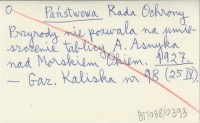 Państwowa Rada Ochrony
Przyrody nie pozwala na umie-
szczenie tablicy A. Asnyka
nad Morskiem Okiem. 1927.
— Gaz. Kaliska nr 98 (25 IV).